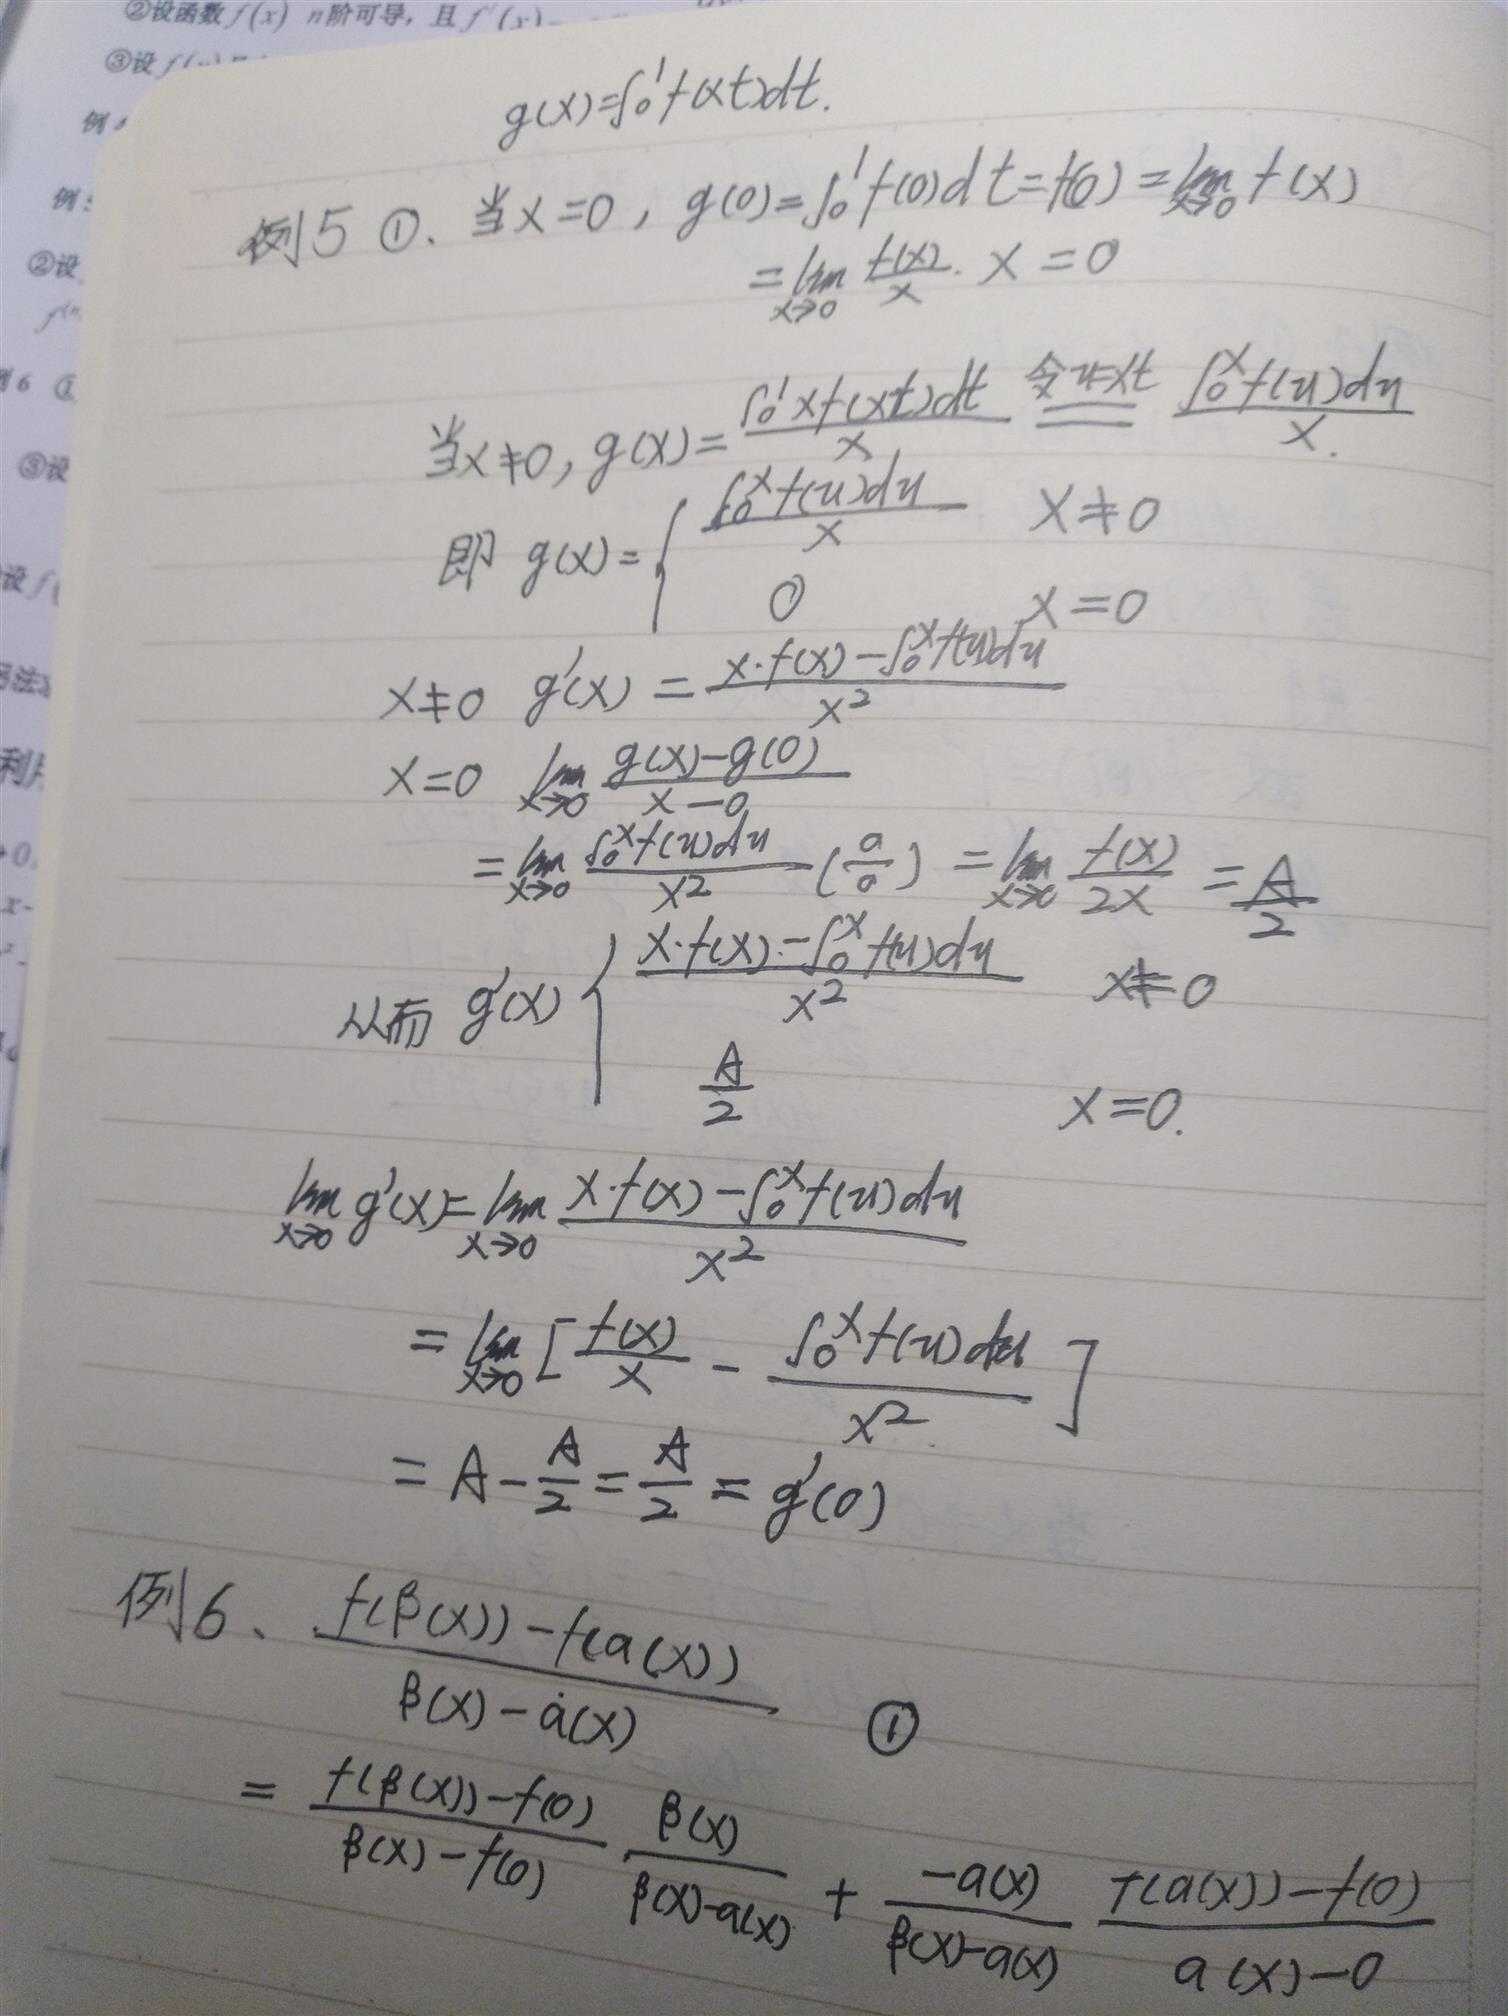 ②设函数f(x) n阶可导，且f'(x)
③设f(x)
例
例5
②设
f⁽ⁿ
例6 ①
③设
设f(
g(x)=∫₀¹f(xt)dt.
例5 ①. 当x=0, g(0)=∫₀¹f(0)dt=f(0)=lim_{x→0} f(x)
=lim_{x→0} f(x)/x · x = 0
当x≠0, g(x)= ∫₀¹xf(xt)dt / x 令u=xt ∫₀ˣf(u)du / x.
即 g(x)= { ∫₀ˣf(u)du / x x≠0
0 x=0
x≠0 g'(x) = (x·f(x)-∫₀ˣf(u)du) / x²
x=0 lim_{x→0} (g(x)-g(0)) / (x-0)
=lim_{x→0} ∫₀ˣf(u)du / x² (0/0) = lim_{x→0} f(x)/2x = A/2
从而 g'(x) { (x·f(x)-∫₀ˣf(u)du) / x² x≠0
A/2 x=0.
lim_{x→0} g'(x)=lim_{x→0} (x·f(x)-∫₀ˣf(u)du) / x²
=lim_{x→0} [ f(x)/x - ∫₀ˣf(u)du / x² ]
=A-A/2=A/2=g'(0)
例6、 (f(β(x))-f(a(x))) / (β(x)-a(x)) ①
= (f(β(x))-f(0)) / (β(x)-f(0)) β(x) / (β(x)-a(x)) + -a(x) / (β(x)-a(x)) (f(a(x))-f(0)) / (a(x)-0)